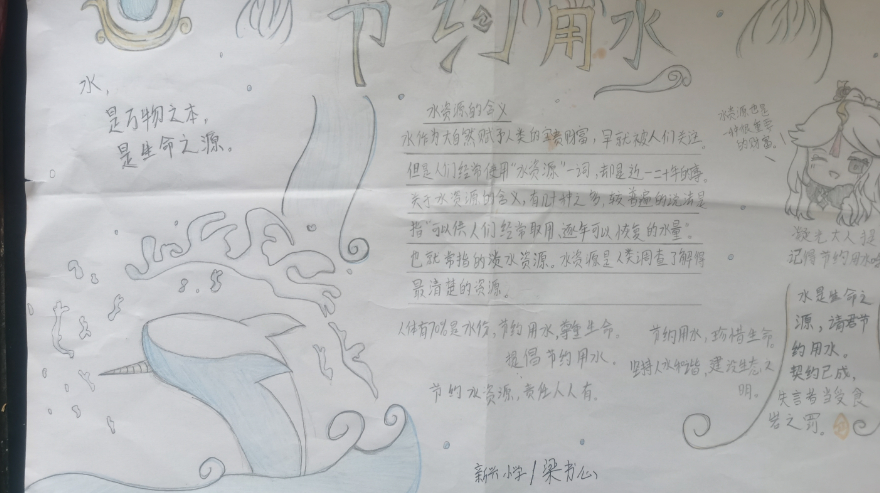 节约用水
水，
是万物之本，
是生命之源。
水资源的含义
水作为大自然赋予人类的宝贵财富，早就被人们关注。
但是人们经常使用“水资源”一词，却是近一二十年的事。
关于水资源的含义，有几十种之多，较普遍的说法是
指“可以供人们经常取用、逐年可以恢复的水量”。
也就常指的淡水资源。水资源是人类调查了解得
最清楚的资源。
水资源也是
一种很重要
的财富。
凝光大人提
记得节约用水
人体有70%是水份，节约用水，尊重生命。
提倡节约用水。
节约水资源，责任人人有。
节约用水，珍惜生命。
坚持人水和谐，建设生态文
明。
水是生命之
源，请君节
约用水。
契约已成，
失言者当受食
岩之罚。
新兴小学/梁